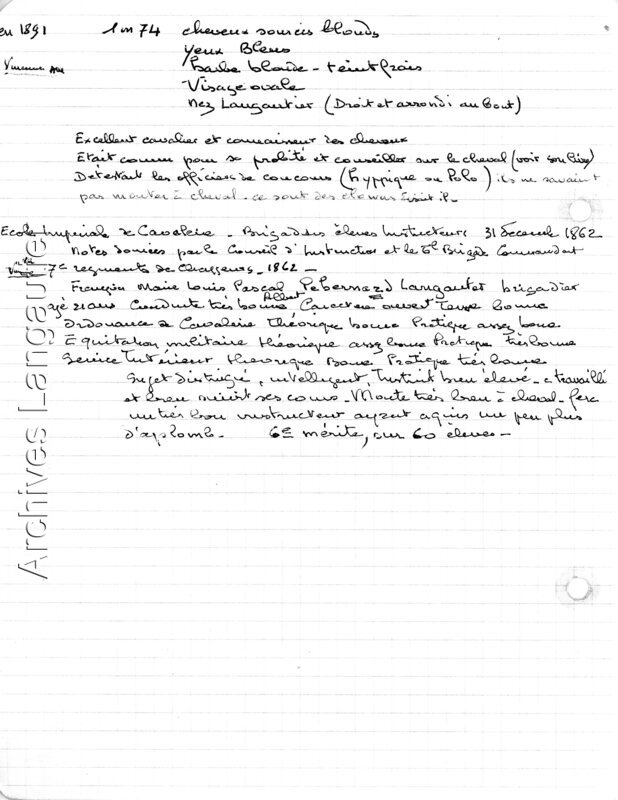 en 1891 1 m 74 cheveux sourcis blonds
yeux Bleus
Barbe blonde - teint frais
Visage ovale
nez Langautier (Droit et arrondi au bout)
Excellent cavalier et connaisseur des chevaux
Etait connu pour sa probité et conseiller sur le cheval (voir son livre)
Détestait les officiers de concours (hyppique ou Polo) ils ne savaient
pas monter à cheval - ce sont des clowns disait il -
Ecole Impériale de Cavalerie - Brigadiers élèves Instructeurs 31 Décemb 1862
Notes données par le Conseil d'Instruction et le Gl Brigade Commandant
7e regiments de Chasseurs - 1862 -
François Marie Louis Pascal Albert Langautier brigadier
agé 21 ans Conduite très bonne, Caractère ouvert Tenue bonne
Ordonnance de Cavalerie Théorique bonne Pratique assez bonne
Equitation militaire théorique assez bonne Pratique très bonne
Service Intérieur théorique Bonne Pratique très bonne
Sujet distingué, intelligent, Instruit bien élevé - a travaillé
et bien suivi ses cours - Monte très bien à cheval - fera
un très bon instructeur ayant aquis un peu plus
d'aplomb - 6e mérite, sur 60 élèves -
Archives Langau (1)